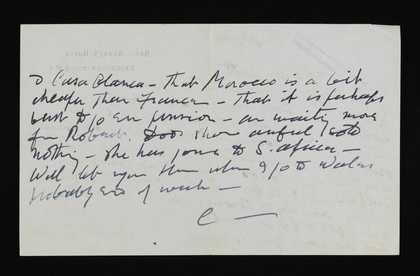 to Casablanca – that Morocco is a bit
cheaper than France – that it is perhaps
best to go en pension – am waiting more
from Robert. show awful
nothing – she has gone to S. Africa –
Will let you know when I go to Wales
probably end of week –
C –